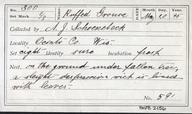 No. 300 Name Ruffed Grouse Date May 20 95
Set Mark 8/9
Collected by A. J. Schoenebeck
Locality Oconto Co. Wis.
Set eight Identity sure Incubation fresh
Nest, on the ground under fallen tree,
a slight depression which is lined
with leaves.
No. 591